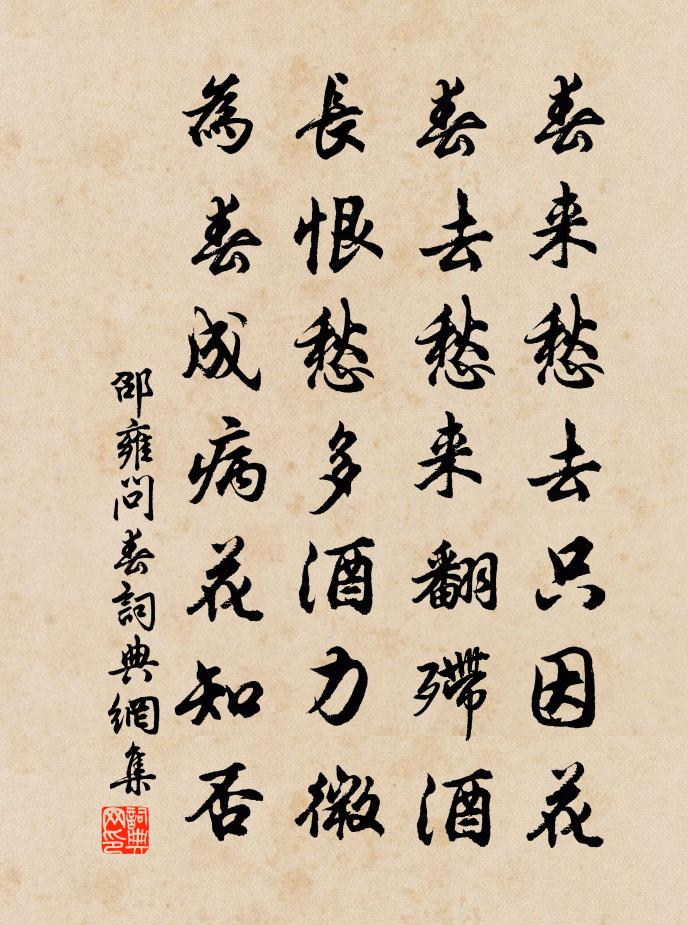 春来愁去只因花
春去愁来翻殢酒
長恨愁多酒力微
為春成病花知否
邵雍問春詞典網集
詞典网印